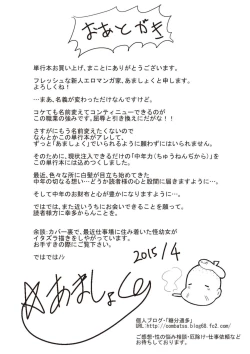 おあとがき
単行本お買い上げ、まことにありがとうございます。
フレッシュな新人エロマンガ家、あましょくと申します。
よろしくね!
…まあ、名義が変わっただけなんですけど。
コケても名前変えてコンティニューできるのが
この職業の強みです。屈辱と引き換えにだがな!!
さすがにもう名前変えたくないので
なんとかこの単行本がアレして、
ずっと「あましょく」でいられるように願わずにはいられません。
そのために、現状注入できるだけの「中年力(ちゅうねんぢから)」を
この単行本にはつぎ込みました。
最近、色々な所に白髪が目立ち始めてきた
中年の切なる想い…どうか読者様の心と股間に届きますように…
そして中年のお財布と心が豊かになりますように…
ではでは、また近いうちにお会いできることを願って。
読者様方に幸多からんことを。
余談:カバー裏で、最近仕事場に住み着いた怪幼女が
イタズラ描きをしやがっています。
お手すきの際にご覧下さい。
ではでは!ﾉｼ
2015/4
あましょく
個人ブログ・「糖分過多」
URL:http://oombatsu.blog68.fc2.com/
ご感想・性の悩み相談・厄除け・仕事依頼など
お待ちしております。